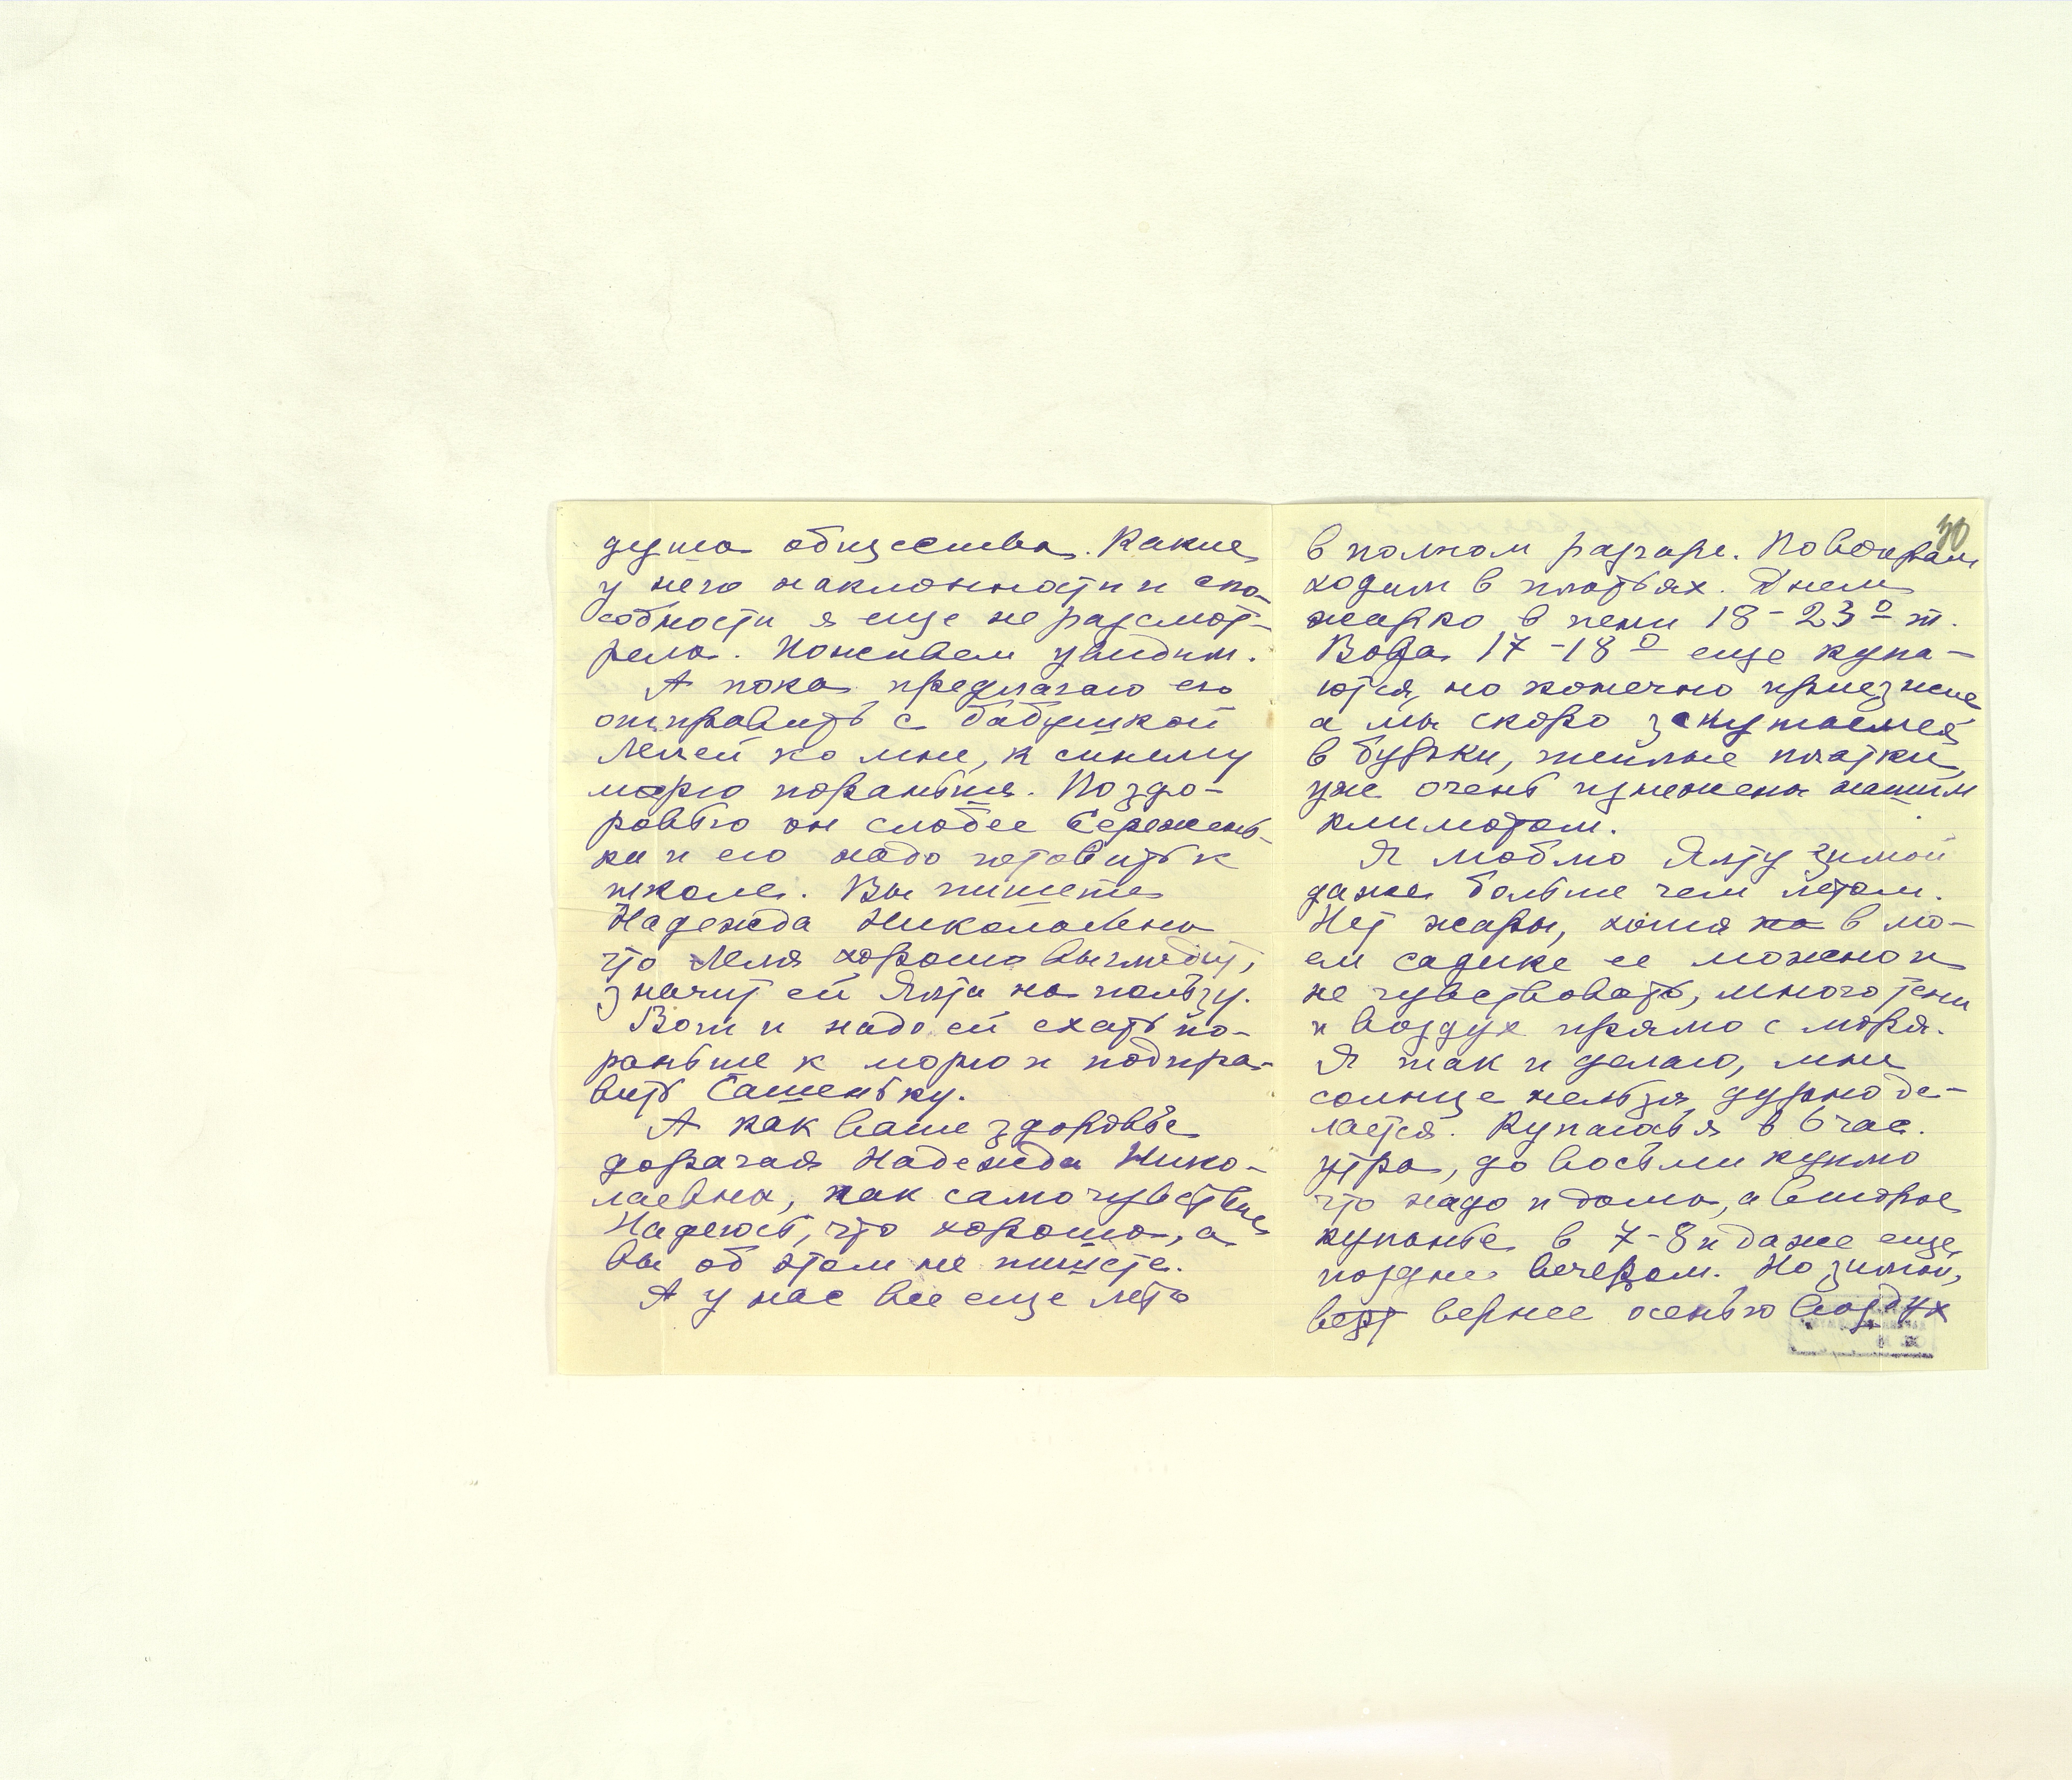 душа общества. Какие
у него наклонности и спо-
собности я еще не разсмот-
рела. Поживем увидим.
А пока предлагаю его
отправить с бабушкой
Лелей ко мне, к синему
морю пораньше. По здо-
ровью он слабее Сережень-
ки и его надо готовить к
школе. Вы пишете
Надежда Николаевна
что Леля хорошо выглядит,
значит ей Ялта на пользу.
Вот и надо ей ехать по-
раньше к морю и подпра-
вить Сашеньку.
А как Ваше здоровье
дорогая Надежда Нико-
лаевна, как самочувствие
Надеюсь, что хорошо, а
Вы об этом не пишете.
А у нас все еще лето
40
в полном разгаре. По вечерам
ходим в платьях. Днем
жарко в тени 18-23° т.
Вода 17-18° еще купа-
ются, но конечно приезжие
а мы скоро закутаемся
в бурки, теплые платки,
уже очень изнежены нашим
климатом.
Я люблю Ялту зимой
даже больше чем летом.
Нет жары, хотя на в мо-
ем садике ее можно и
не чувствовать, много тени
и воздух прямо с моря.
Я так и делаю, мне
солнце нельзя, дурно де-
лается. Купалась я в 6 час.
утра, до восьми куплю
что надо и дома, а второе
купанье в 7-8 и даже еще
позднее вечером. Но зимой,
вернее осенью воздух